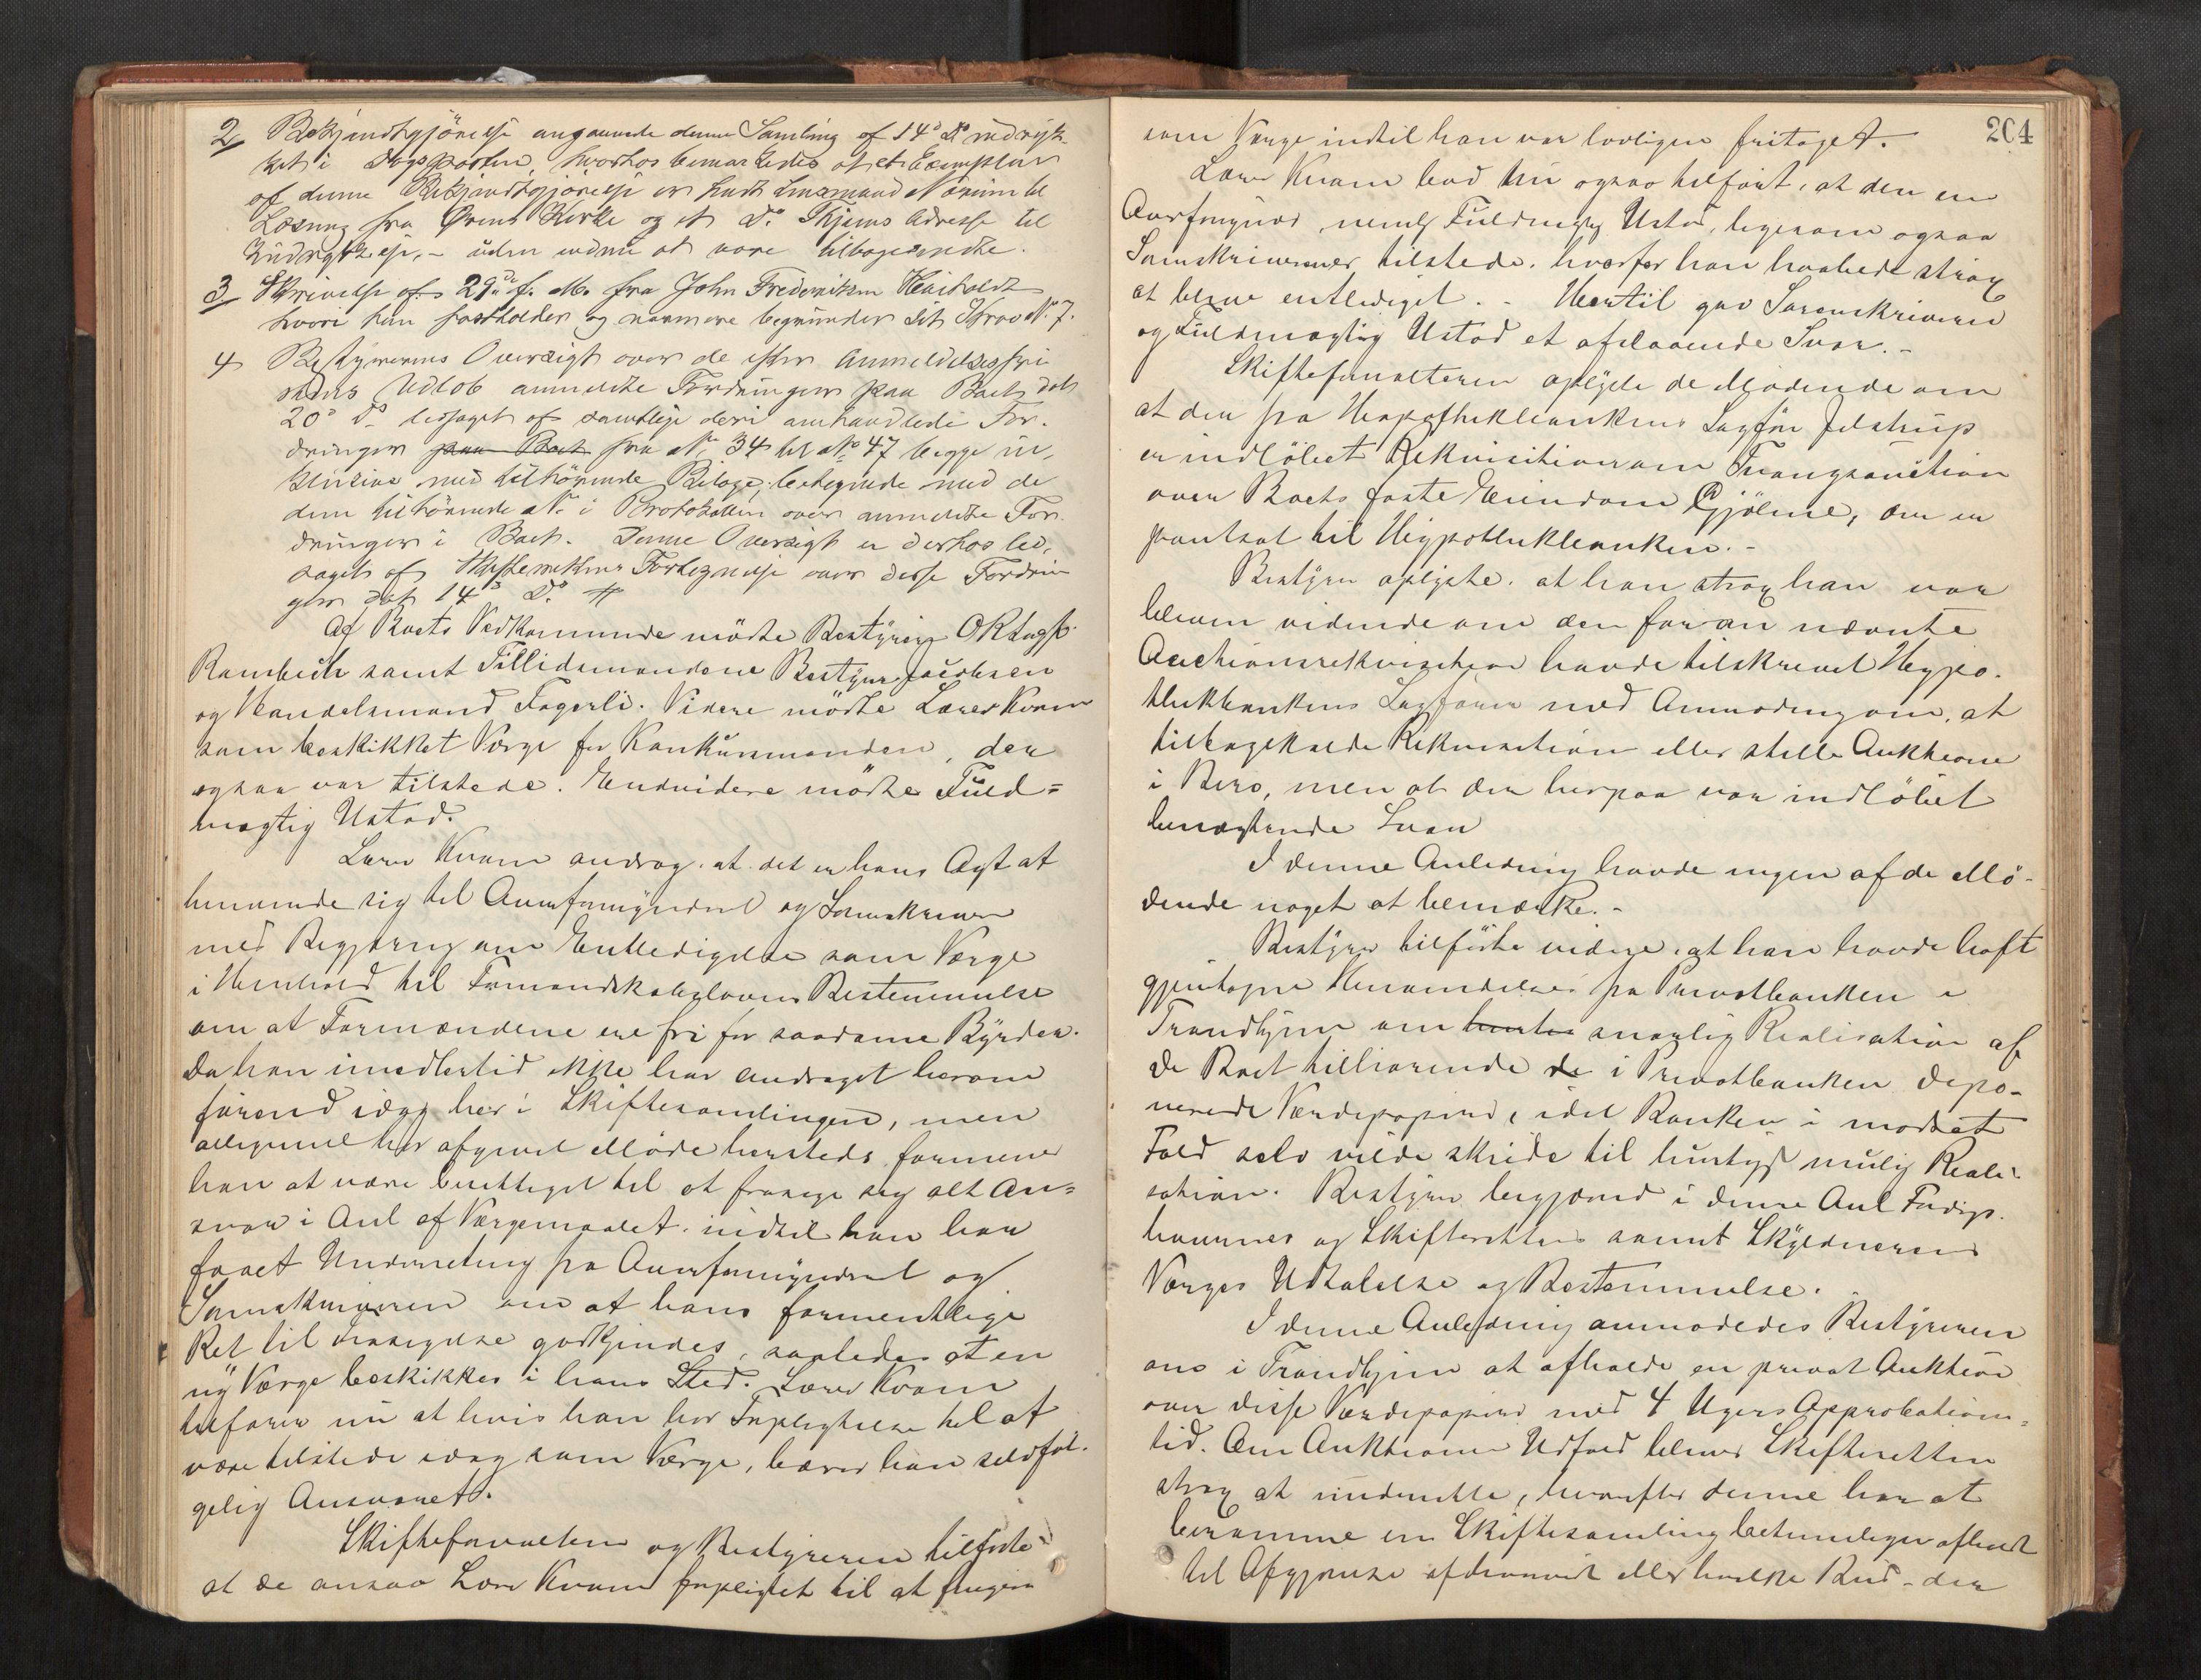 2/ Bekjendtgjörelse angaaende denne Samling af 14de ds indryk-
ket i Dagsposten, hvorhos bemærkedes at et Exemplar
af denne Bekjendtgjörelse er sendt Lensmand til
Læsning fra Ørens Kirke og et do Adresse til
uden endnu at være tilbagesendte.
3/ Skrivelse af 29de f. M. fra John Frederiksen
hvori han fastholder og nærmere begrunder sit Krav No 7.
4 Bestyrerens Oversigt over de efter Anmeldelsesfri
stens Udlöb anmeldte Fordringer paa Boet dat
20de ds ledsaget af samtlige deri omhandlede For-
dringer paa Boet fra No 34 til No 47 begge in-
klusive med tilhörende Bilage, betegnede med de
dem tilhörende No i Protokollen over anmeldte For
dringer i Boet. Denne Oversigt er derhos led-
saget af Skifterettens Fortegnelse over disse Fordrin
ger dat 14de ds
Af Boets Vedkommende mödte Bestyreren
Rambech samt Tillidsmændene Bestyrer Jacobsen
og Handelsmand Fagerli. Videre mödte Lærer Kvam
som beskikket Værge for Konkursmanden, der
ogsaa var tilstede. Endvidere mödte Fuld=
mægtig Ustad.
Lærer Kvam androg at det er hans Agt at
henvende sig til Overformynderiet og Sorenskriveren
med Begjæring om Entledigelse som Værge
i Henhold til Formandskabslovens Bestemmelse
om at Formændene ere fri for saadanne Byrder.
Da han imedlertid ikke har andraget herom
förend idag her i Skiftesamlingen, men
alligevel har afgivet Möde hersteds formener
han at være berettiget til at frasige sig alt An=
svar i Anl af Værgemaalet indtil han har
faaet Underretning fra Overformynderiet og
Sorenskriveren om at hans formentlige
Ret til Frasigelse godkjendes, saaledes at en
ny Værge beskikkes i hans Sted. Lærer Kvam
tilförer nu at hvis han har Forpligtelse til at
være tilstede idag som Værge, bærer han selvföl-
gelig Ansvaret.
Skifteforvalteren og Bestyreren tilförte
at de ansaa Lærer Kvam forpligtet til at fungere
204
som Værge indtil han var lovligen fritaget.
Lærer Kvam bad nu ogsaa tilfört, at den ene
Overformynder, nemlig Fuldmægtig Ustad, ligesom ogsaa
Sorenskriveren er tilstede, hvorfor han haabede strax
at blive entlediget. - Hertil gav Sorenskriveren
og Fuldmægtig Ustad et afslaaende Svar. -
Skifteforvalteren oplyste de Mödende om
at der fra Hypothekbankens Sagförer Jelstrup
er indlöbet Rekvisition om Tvangsauction
over Boets faste Eiendom Gjölme, der er
pantsat til Hypothekbanken. -
Bestyreren oplyste at han strax han var
bleven vidende om den foran nævnte
Auctionsrekvisition havde tilskrevet Hypo-
thekbankens Sagförer med Anmodning om, at
tilbagekalde Rekvisition eller stille Auktionen
i Bero, men at der herpaa var indlöbet
benægtende Svar
I denne Anledning havde ingen af de Mö-
dende noget at bemærke. -
Bestyrer tilförte videre, at han havde haft
gjentagne Henvendelser fra Privatbanken i
Trondhjem om snarlig Realisation af
de Boet tilhörende de i Privatbanken depo-
nerede Værdipapirer, idet Banken i modsat
Fald selv vilde skride til hurtigst mulig Reali-
sation. Bestyrer begjærede i denne Anl Fordrings-
havernes og Skifterettens samt Skyldnerens
Værges Udtalelse og Bestemmelse.
I denne Anledning anmodedes Bestyreren
om i Trondhjem at afholde en privat Auktion
over disse Værdipapirer med 4 Ugers Approbations=
tid. Om Auktionens Udfald bliver Skifteretten
strax at underrette, hvorefter denne har at
beramme en Skiftesamling betimeligen afholdt
til Afgjörelse af hvorvidt eller hvilke Bud - der